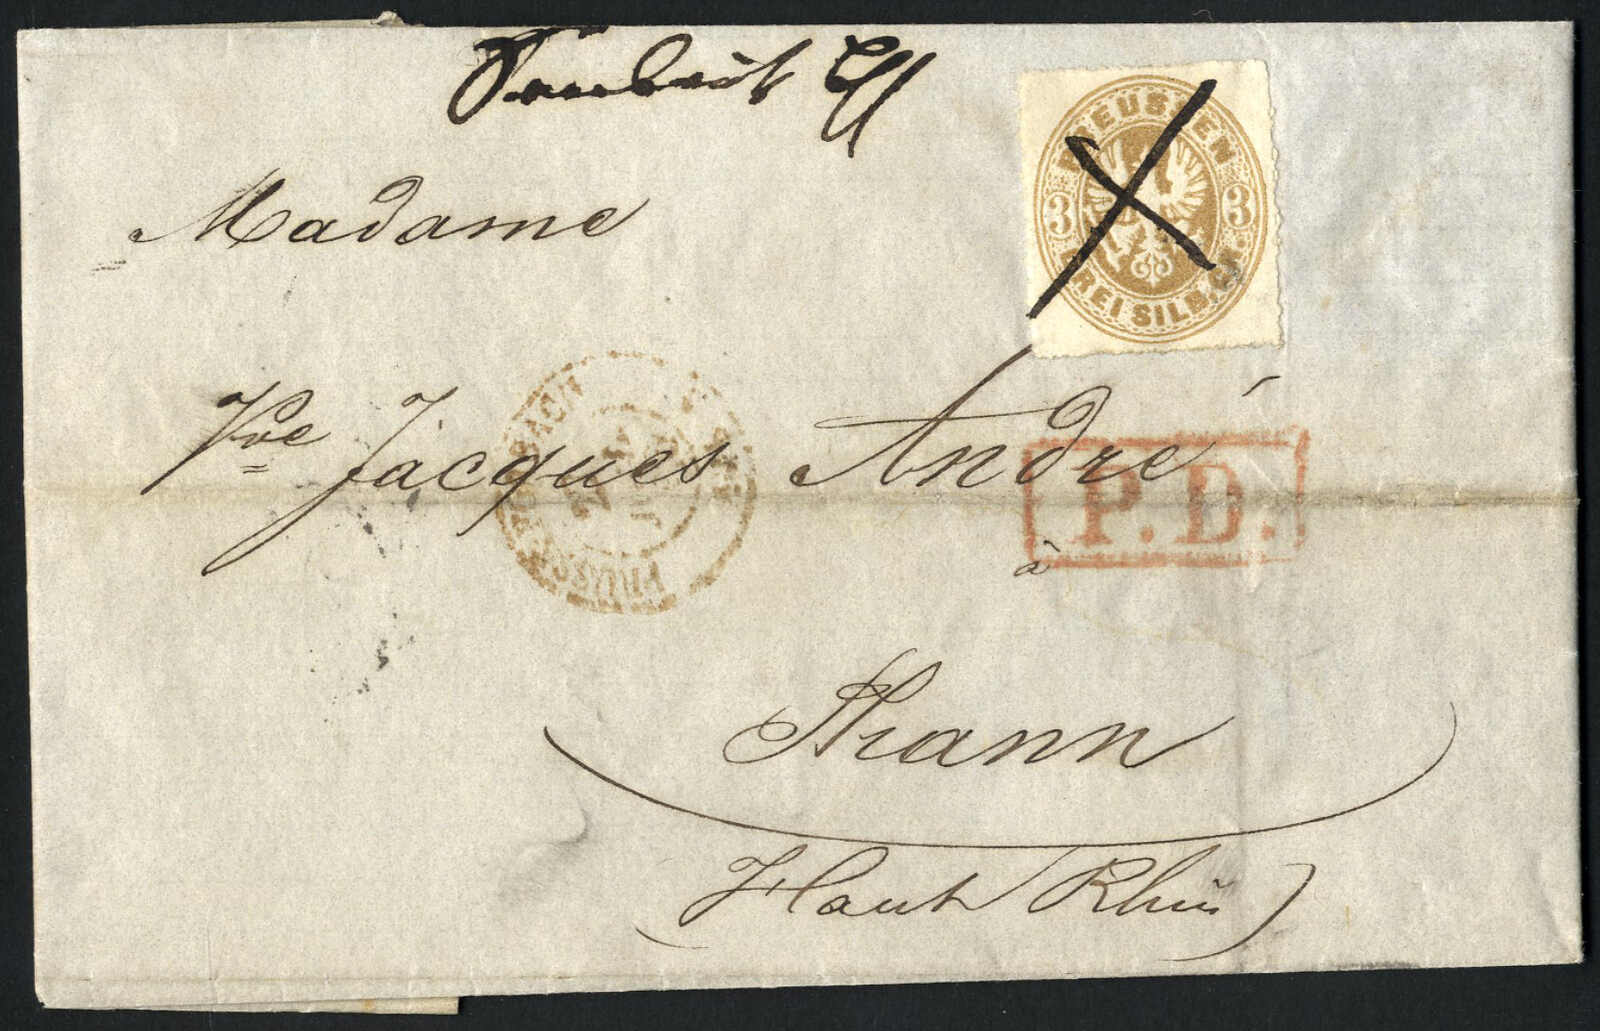 PREUSSEN
3 3
DREI SILB.GR.
Madame
Vve Jacques André
P.D.
à
Thann
(Haut Rhin)